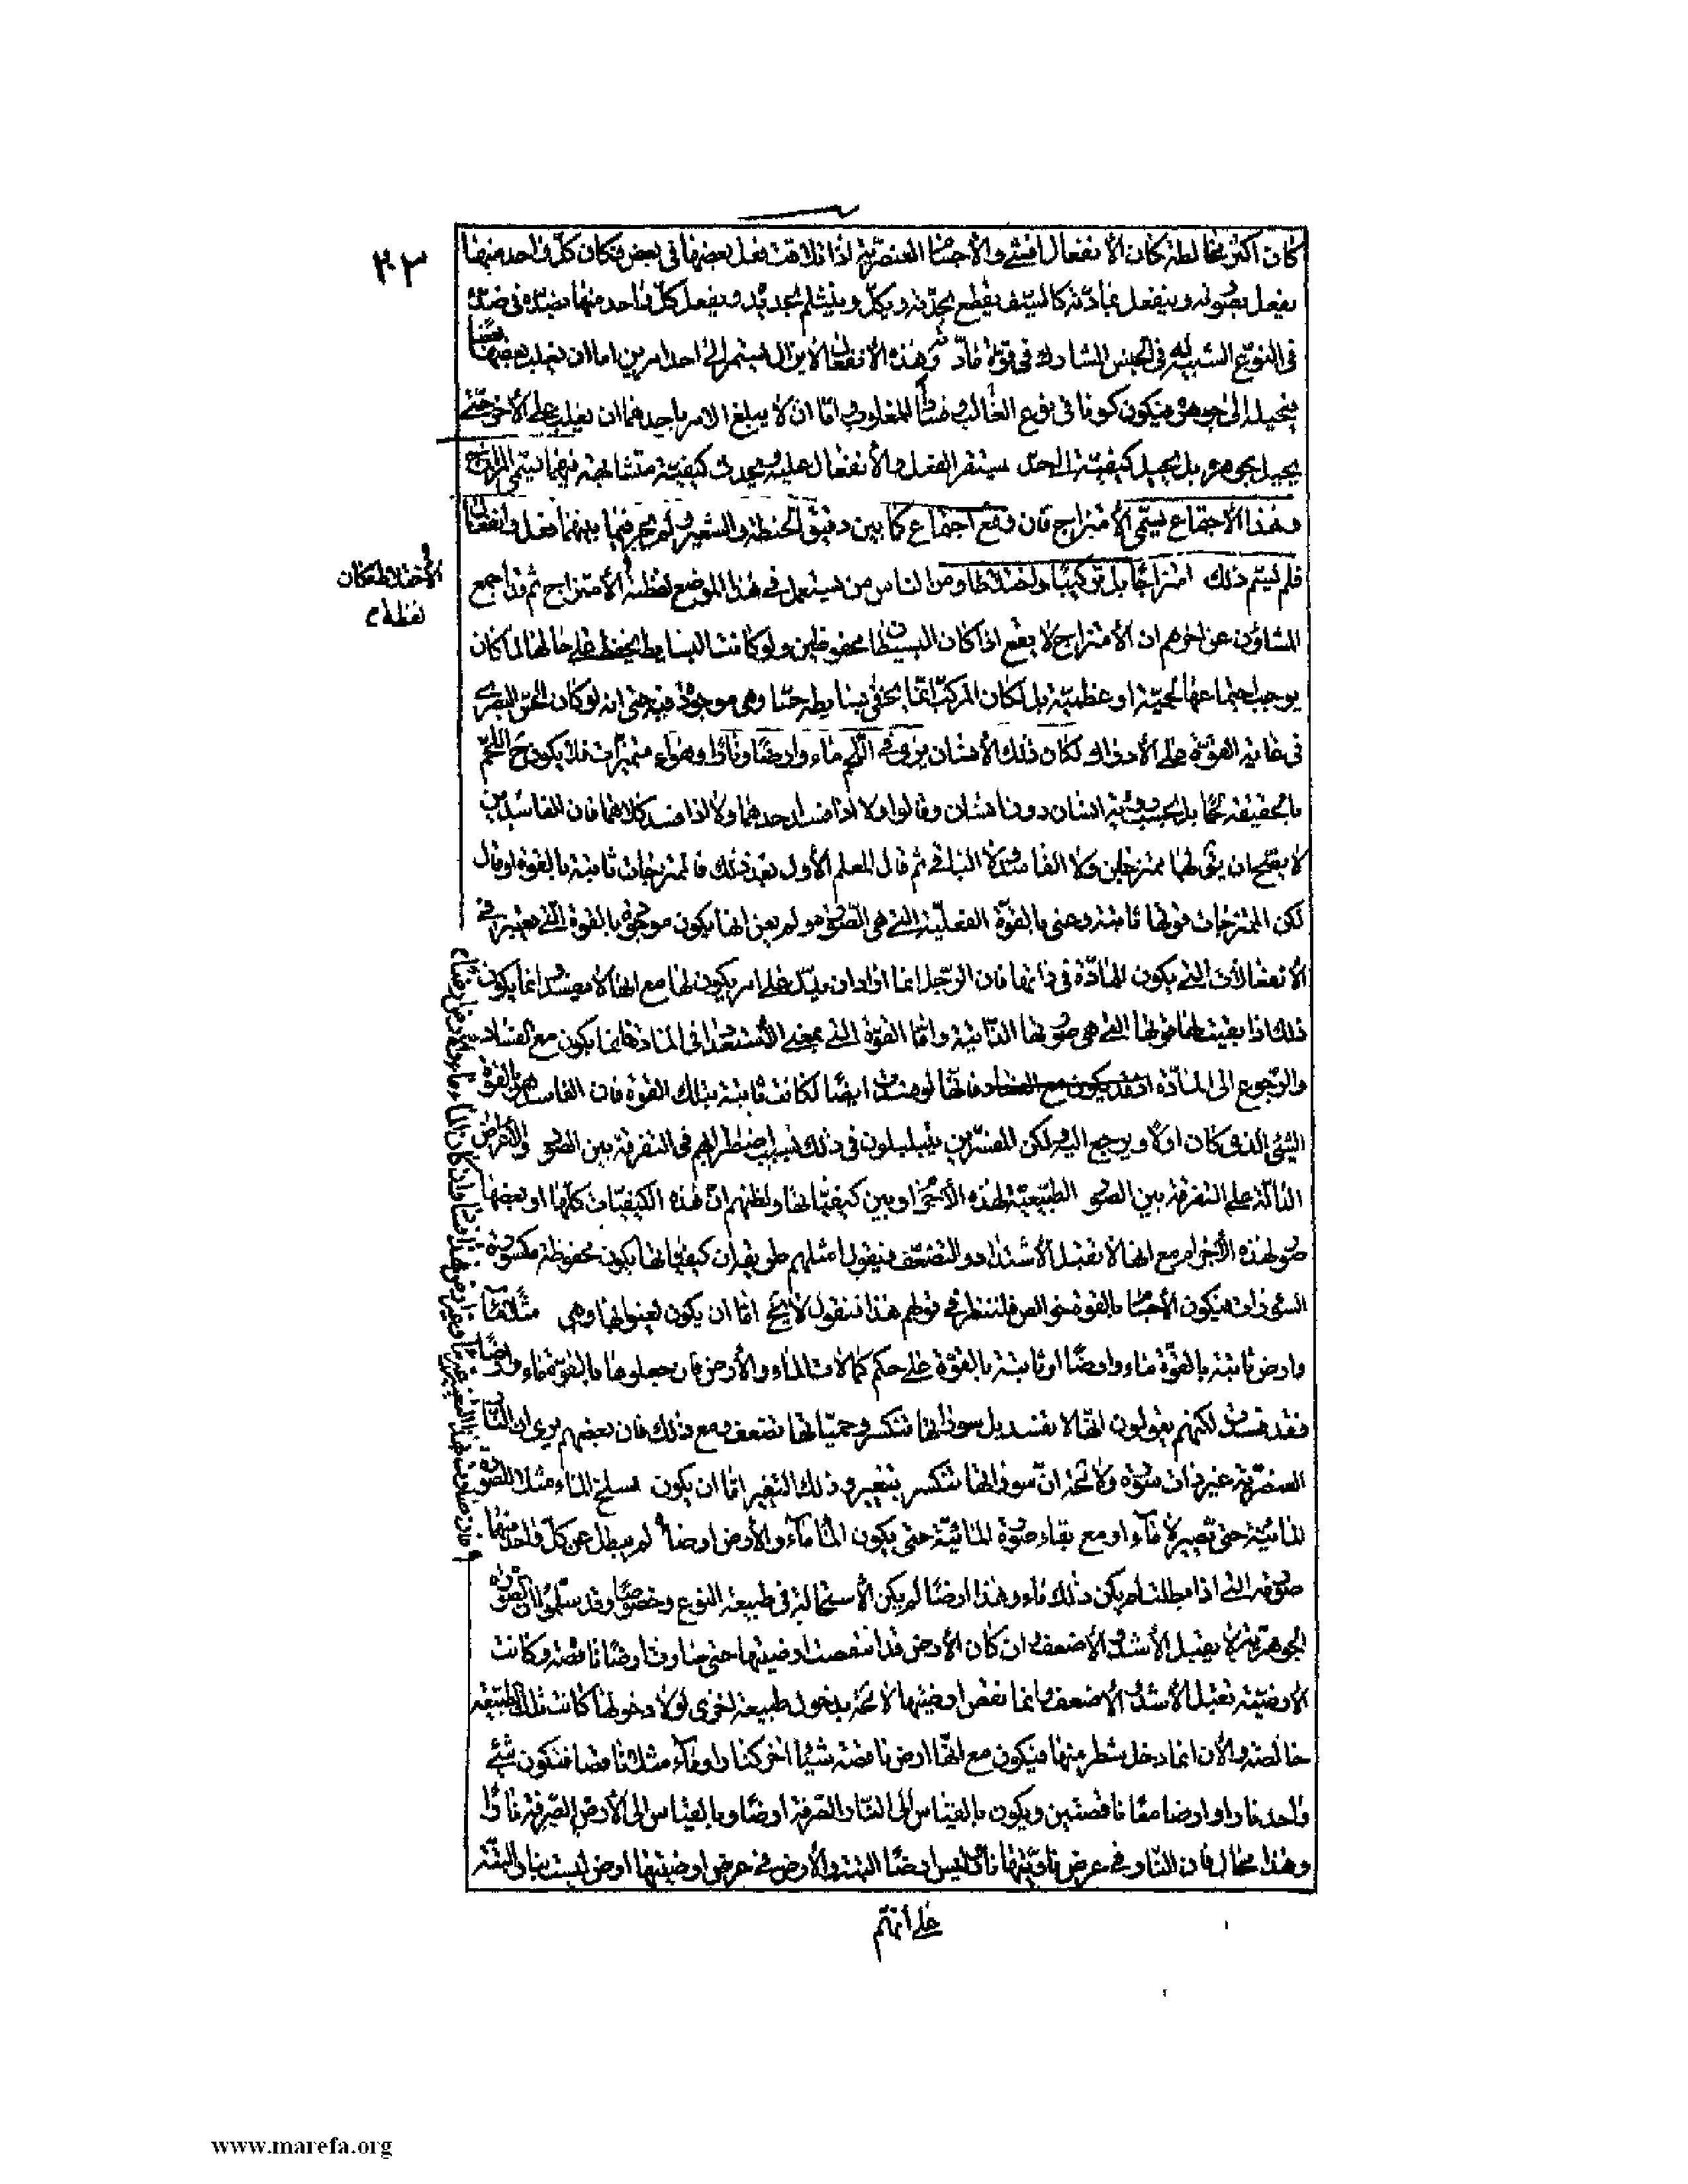 ٢٣
كان أكثر مخالطة كان الانفعال افشى والأجسام العنصرية اذا تلاقت فعل بعضها فى بعض فكان كل واحد منها
يفعل بصورته وينفعل بمادته كالسيف يقطع بحدته ويكل وينثلم بحديده ويفعل كل واحد منها بصورته فى ضده
فى النوع الشبيه له فى الجنس المشارك فى قوة مادته وهذه الانفعالات لا يزال يستمر الى احد امرين اما ان يغلب بعضها بعضا
فيحيله الى جوهره فيكون كونا فى نوع الغالب وفسادا للمغلوب واما ان لا يبلغ الامر باحدهما ان يغلب على الآخر حتى
يحيل جوهره بل يحيل كيفيته الى حد يستقر الفعل والانفعال عليه ويحدث كيفية متشابهة فيهما تسمى المزاج
وهذا الاجتماع يسمى الامتزاج فان وقع اجتماع كما بين دقيق الحنطة والشعير ولم يجر فيما بينهما فعل وانفعال
فلم يسم ذلك امتزاجا بل تركيبا واختلاطا ومن الناس من يستعمل فى هذا الموضع لفظة الامتزاج ثم قد اجمع
الاختلاط مكان
لفظة
المشاؤن عن اخرهم ان الامتزاج لا يقع اذا كان البسيطان محفوظين ولو كانت البسايط يحفظ على حالها لما كان
يوجب اجتماعها لحمية او عظمية بل لكان المركب انما يخفى بسايطه حسا وهى موجودة فيه حتى انه لو كان الحس البصرى
فى غاية القوة على الادراك لكان ذلك الانسان يرى فى اللحم ماء وارضا ونارا وهواء متميزات فلا يكون ح اللحم
بالحقيقة لحما بل بحسب رؤية انسان دون انسان وقالوا ولا اذا فسد احدهما ولا اذا فسد كلاهما فان الفاسدين
لا يصلح ان يق لهما ممتزجين ولا الفاسد والباقى ثم قال المعلم الأول بعد ذلك فالممتزجات ثابتة بالقوة او قال
لكن الممتزجات قوتها ثابتة وعنى بالقوة الفعلية التى هى الصورة ولم يعن انها يكون موجودة بالقوة التى يعتبر فى
الانفعالات التى يكون للمادة فى ذاتها فان الرجل انما اراد ان يدل على امر يكون لها مع انها لا يفسد انما يكون
ذلك اذا بقيت لها قوتها التى هى صورتها الذاتية واما القوة التى بمعنى الاستعداد فى المادة فانما يكون مع الفساد
والرجوع الى المادة فانها لو فسدت ايضا لكانت ثابتة بتلك القوة فان الفاسد هو بالقوة
الشئ الذى كان اولا ويرجع اليه لكن المفسرين يتبلبلون فى ذلك بسبب اضطرابهم فى التفرقة بين الصور والاعراض
الدالة على التفرقة بين الصور الطبيعية لهذه الأجرام وبين كيفياتها ولظنهم ان هذه الكيفيات كلها او بعضها
صور لهذه الأجرام مع انها لا تقبل الأشتداد والتضعف فيقول امثلهم طريقة ان كيفياتها يكون محفوظة مكسورة
السورات فيكون الأجسام بالقوة نحو الصرف فلننظر فى قولهم هذا فنقول لا يخ اما ان يكون يعنوا بها وهى مثلا ماء
وارض ثابتة بالقوة ماء وارضا او ثابتة بالقوة على حكم كمالات الماء والأرض فان جعلوها بالقوة ماء وارضا
فقد فسدت لكنهم يقولون انها لا تفسد بل سوراتها تنكسر وحمياتها تضعف ومع ذلك فان بعضهم يرى ان النار
الصرفة غير ذات سورة ولا محة ان سوراتها تنكسر بتغير وذلك التغير اما ان يكون يسلخ الماء مثلا الصورة
المائية حتى تصير لا ماء او مع بقاء صورة المائية حتى يكون الماء ماء والأرض ارضا لم يبطل عن كل واحد منهما
صورته التى اذا بطلت لم يكن ذلك ماء وهذا ارضا لم يكن الأستحالة فى طبيعة النوع وخصوصا وقد سلموا ان الصورة
الجوهرية لا يقبل الأشد والأضعف وان كان الأرض قد انتقصت ارضيتها حتى صارت ارضا ناقصة وكانت
الارضية تقبل الأشد والأضعف وانما نقص ارضيتها لا محة بدخول طبيعة اخرى لولا دخولها كانت تلك الطبيعة
خالصة والآن انما دخل شطر منها فيكون مع انها ارض ناقصة شيئا آخر كنار او ماء مثلا ناقصا فيكون شئ
واحد نارا وارضا معا ناقصتين ويكون بالقياس الى النار الصرفة ارضا وبالقياس الى الأرض الصرفة نارا
وهذا محال فان النار فى عرض ناريتها نار ليس ارضا البتة والأرض فى عرض ارضيتها ارض ليست بنار البتة
على انهم
www.marefa.org